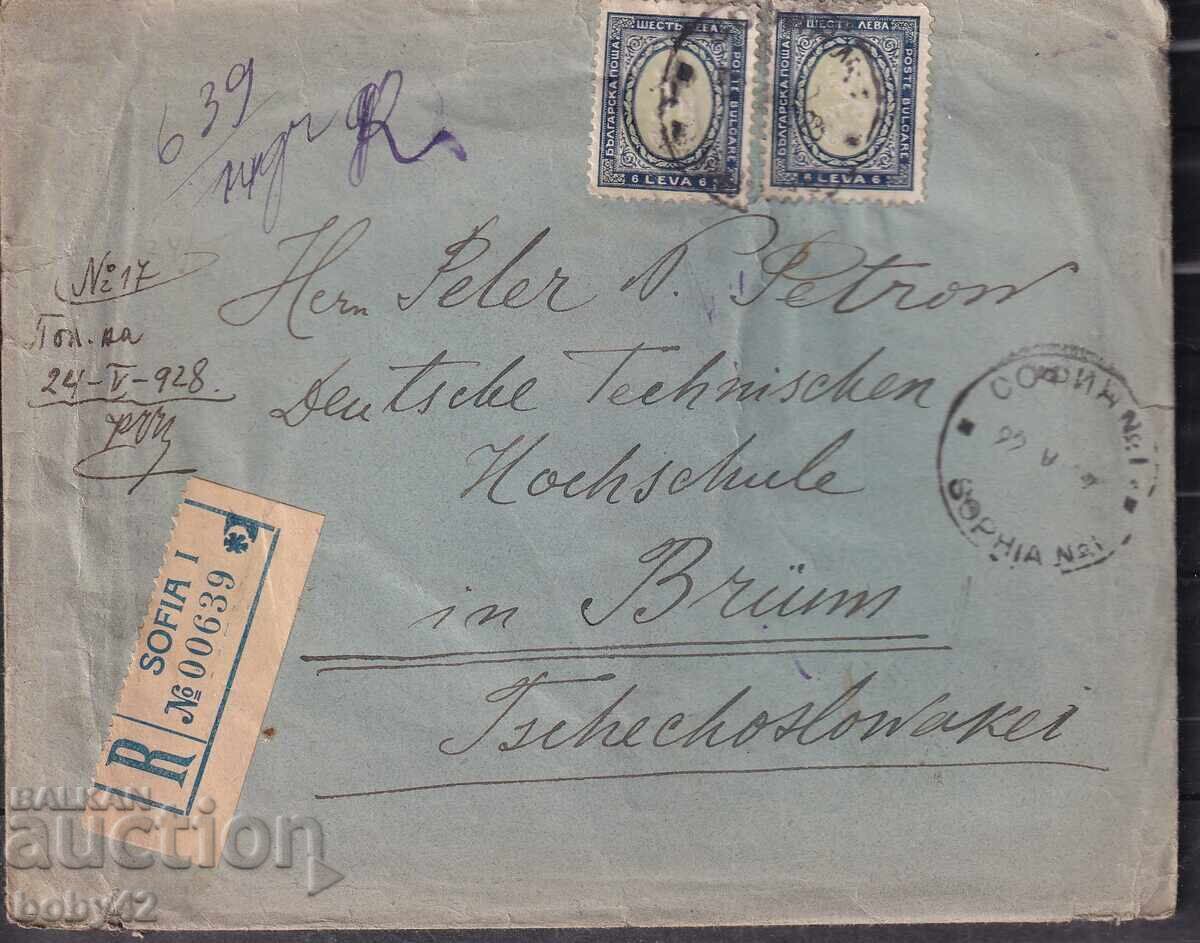 ШЕСТЬ ЛЕВА
БЪЛГАРСКА ПОЩА
POSTE BULGARE
6 LEVA 6
ШЕСТЬ ЛЕВА
БЪЛГАРСКА ПОЩА
POSTE BULGARE
6 LEVA 6
639
R
№ 17
Пол. на
24-V-928.
Herrn Peter N. Petrow
Deutsche Technischen
Hochschule
in Brünn
Tschechoslowakei
СОФИЯ №1
SOPHIA №1
R
SOFIA I
№ 00639
BALKAN
auction
boby42